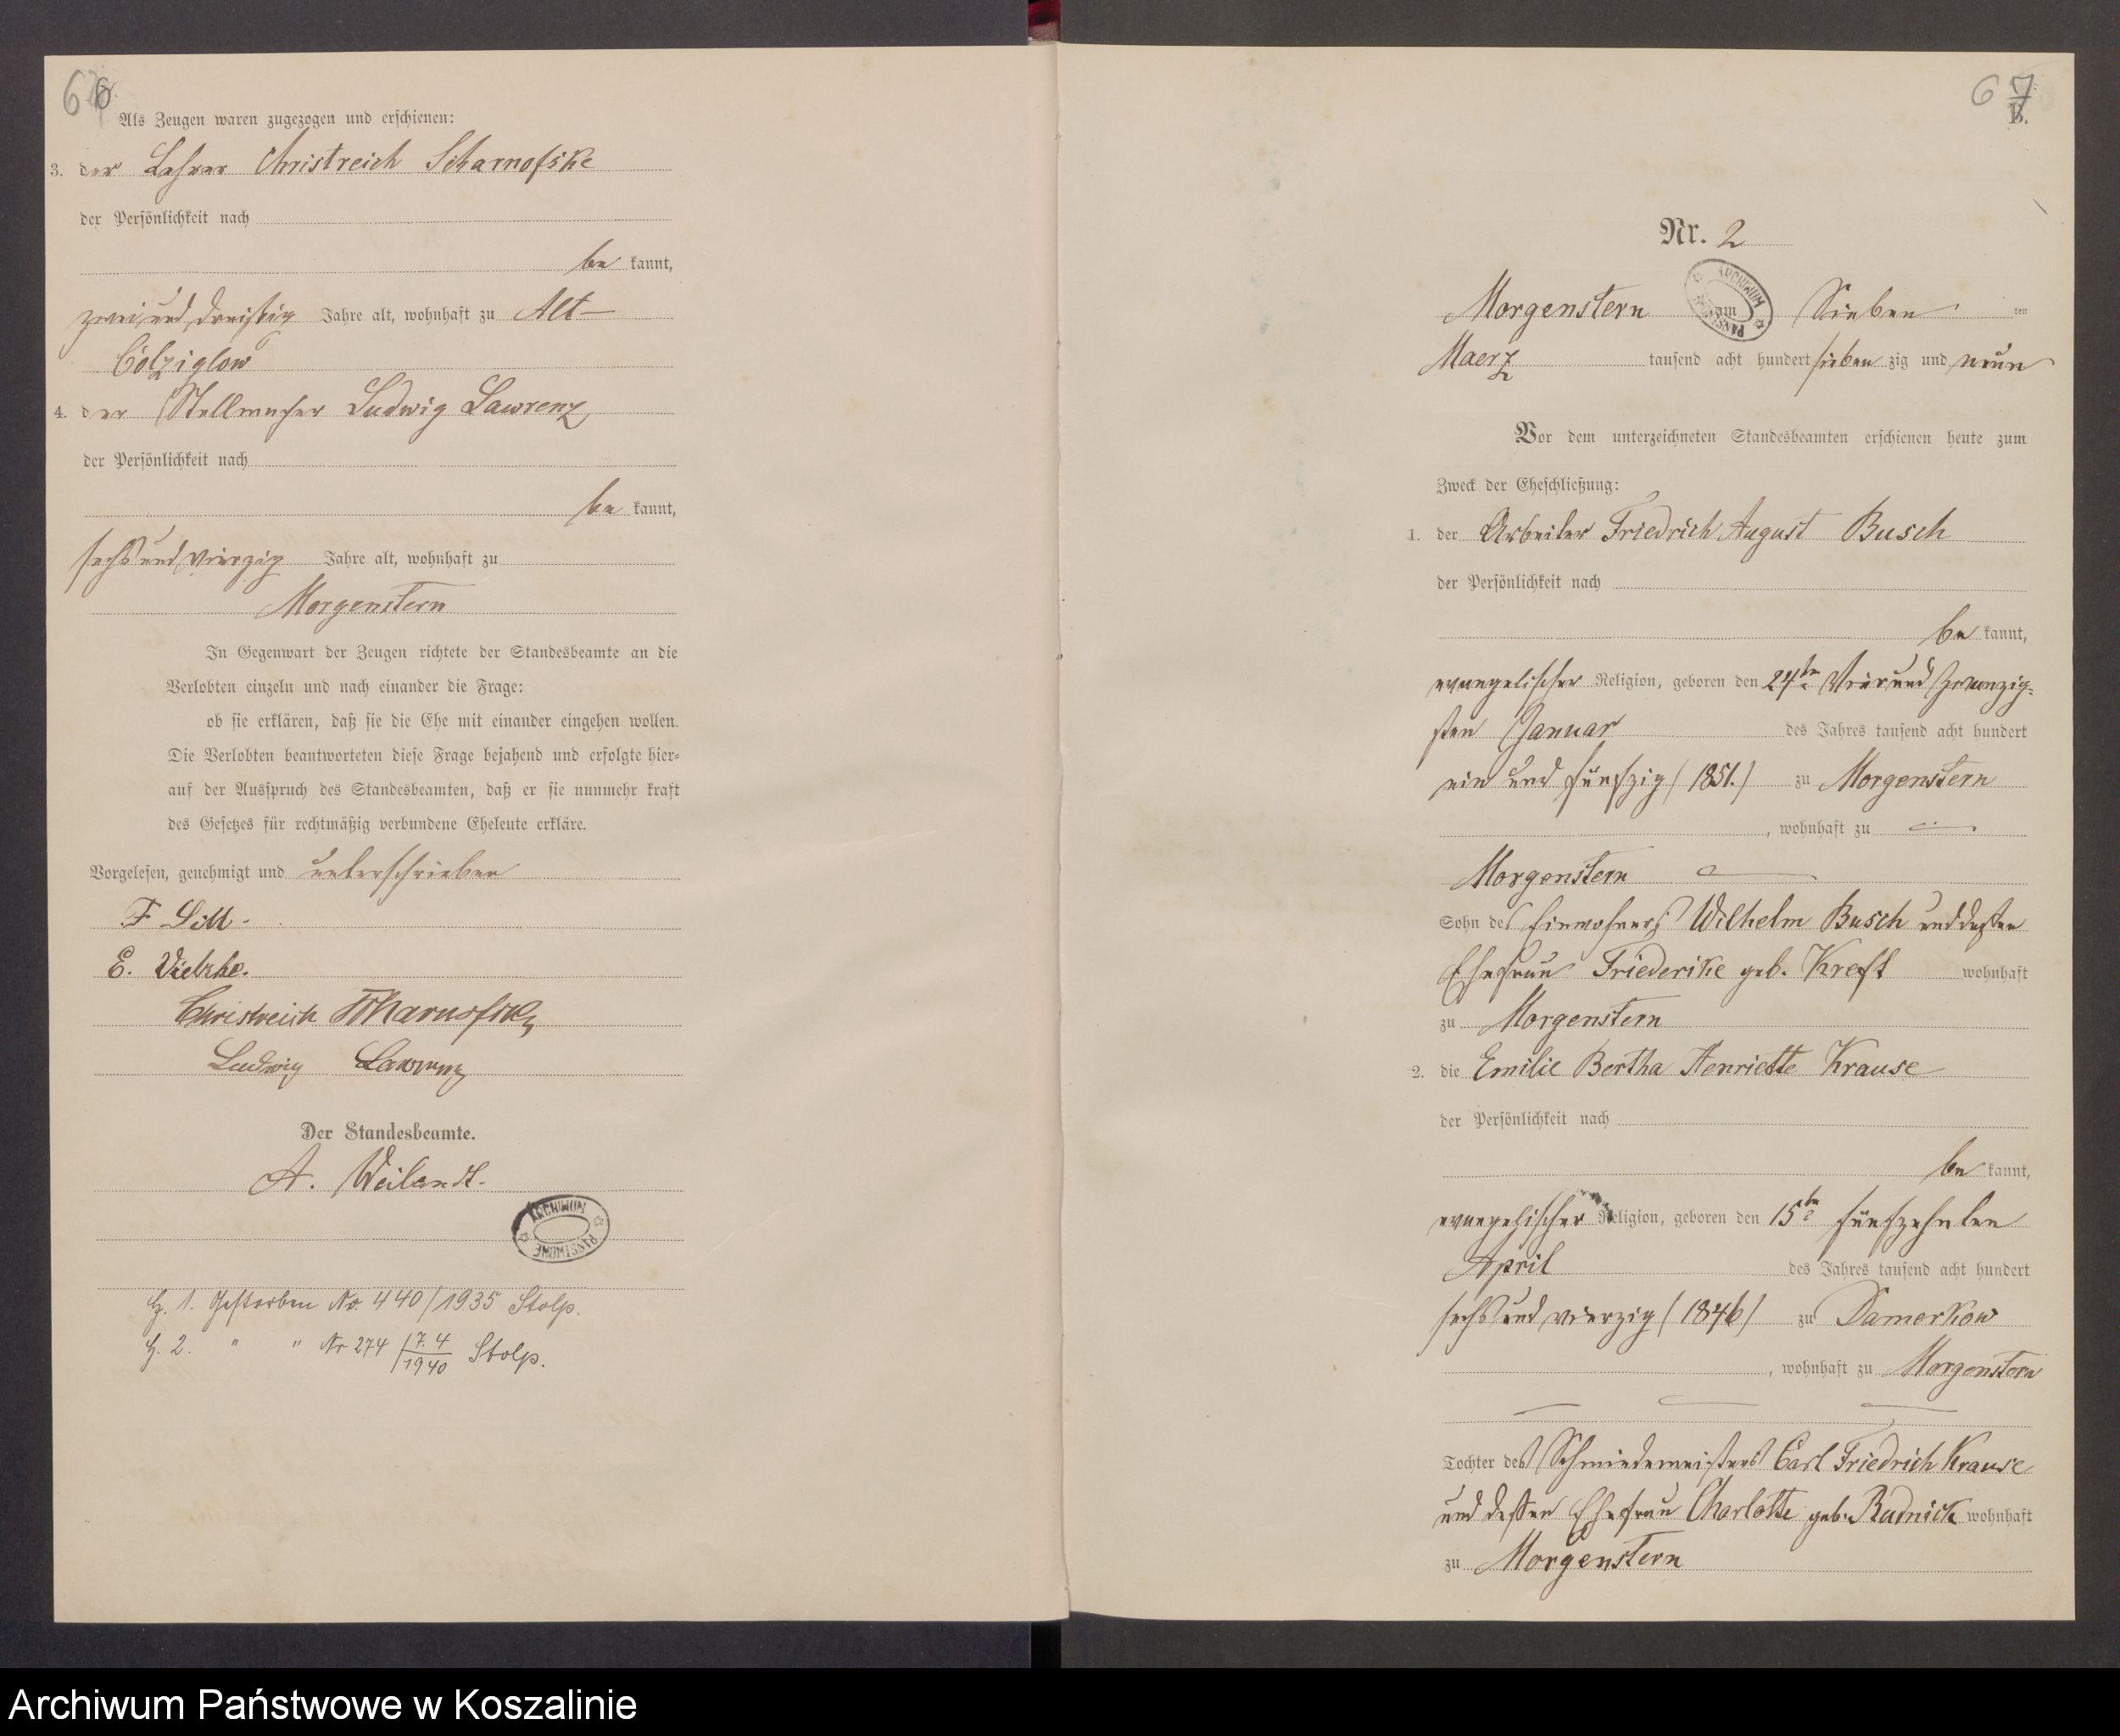 66
Als Zeugen waren zugezogen und erschienen:
3. der Lehrer Christreich Scharnofske
der Persönlichkeit nach
be kannt,
zwei und dreißig Jahre alt, wohnhaft zu Alt-
Cölziglow
4. der Stellmacher Ludwig Lawrenz
der Persönlichkeit nach
be kannt,
sechs und vierzig Jahre alt, wohnhaft zu
Morgenstern
In Gegenwart der Zeugen richtete der Standesbeamte an die
Verlobten einzeln und nach einander die Frage:
ob sie erklären, daß sie die Ehe mit einander eingehen wollen.
Die Verlobten beantworteten diese Frage bejahend und erfolgte hier-
auf der Ausspruch des Standesbeamten, daß er sie nunmehr kraft
des Gesetzes für rechtmäßig verbundene Eheleute erkläre.
Vorgelesen, genehmigt und unterschrieben
F
E.
Christreich Scharnofske
Ludwig Lawrenz
Der Standesbeamte.
A. Weilandt.
ARCHIWUM PAŃSTWOWE
1. Gestorben No. 440/1935 Stolp.
2. " " Nr 274 / 7.4 1940 Stolp.
67
B.
Nr. 2
Morgenstern am Sieben ten
ARCHIWUM PAŃSTW
Maerz tausend acht hundert sieben zig und neun
Vor dem unterzeichneten Standesbeamten erschienen heute zum
Zweck der Eheschließung:
1. der Arbeiter Friedrich August Busch
der Persönlichkeit nach
be kannt,
evangelischer Religion, geboren den 24ten Vier und zwanzig-
sten Januar des Jahres tausend acht hundert
ein und fünfzig (1851.) zu Morgenstern
, wohnhaft zu
Morgenstern
Sohn des Einwohners Wilhelm Busch und dessen
Ehefrau Friederike geb. Kreft wohnhaft
zu Morgenstern
2. die Emilie Bertha Henriette Krause
der Persönlichkeit nach
be kannt,
evangelischer Religion, geboren den 15ten fünfzehnten
April des Jahres tausend acht hundert
sechs und vierzig (1846) zu Damerkow
, wohnhaft zu Morgenstern
Tochter des Schmiedemeisters Carl Friedrich Krause
und dessen Ehefrau Charlotte geb. Radnick wohnhaft
zu Morgenstern
Archiwum Państwowe w Koszalinie